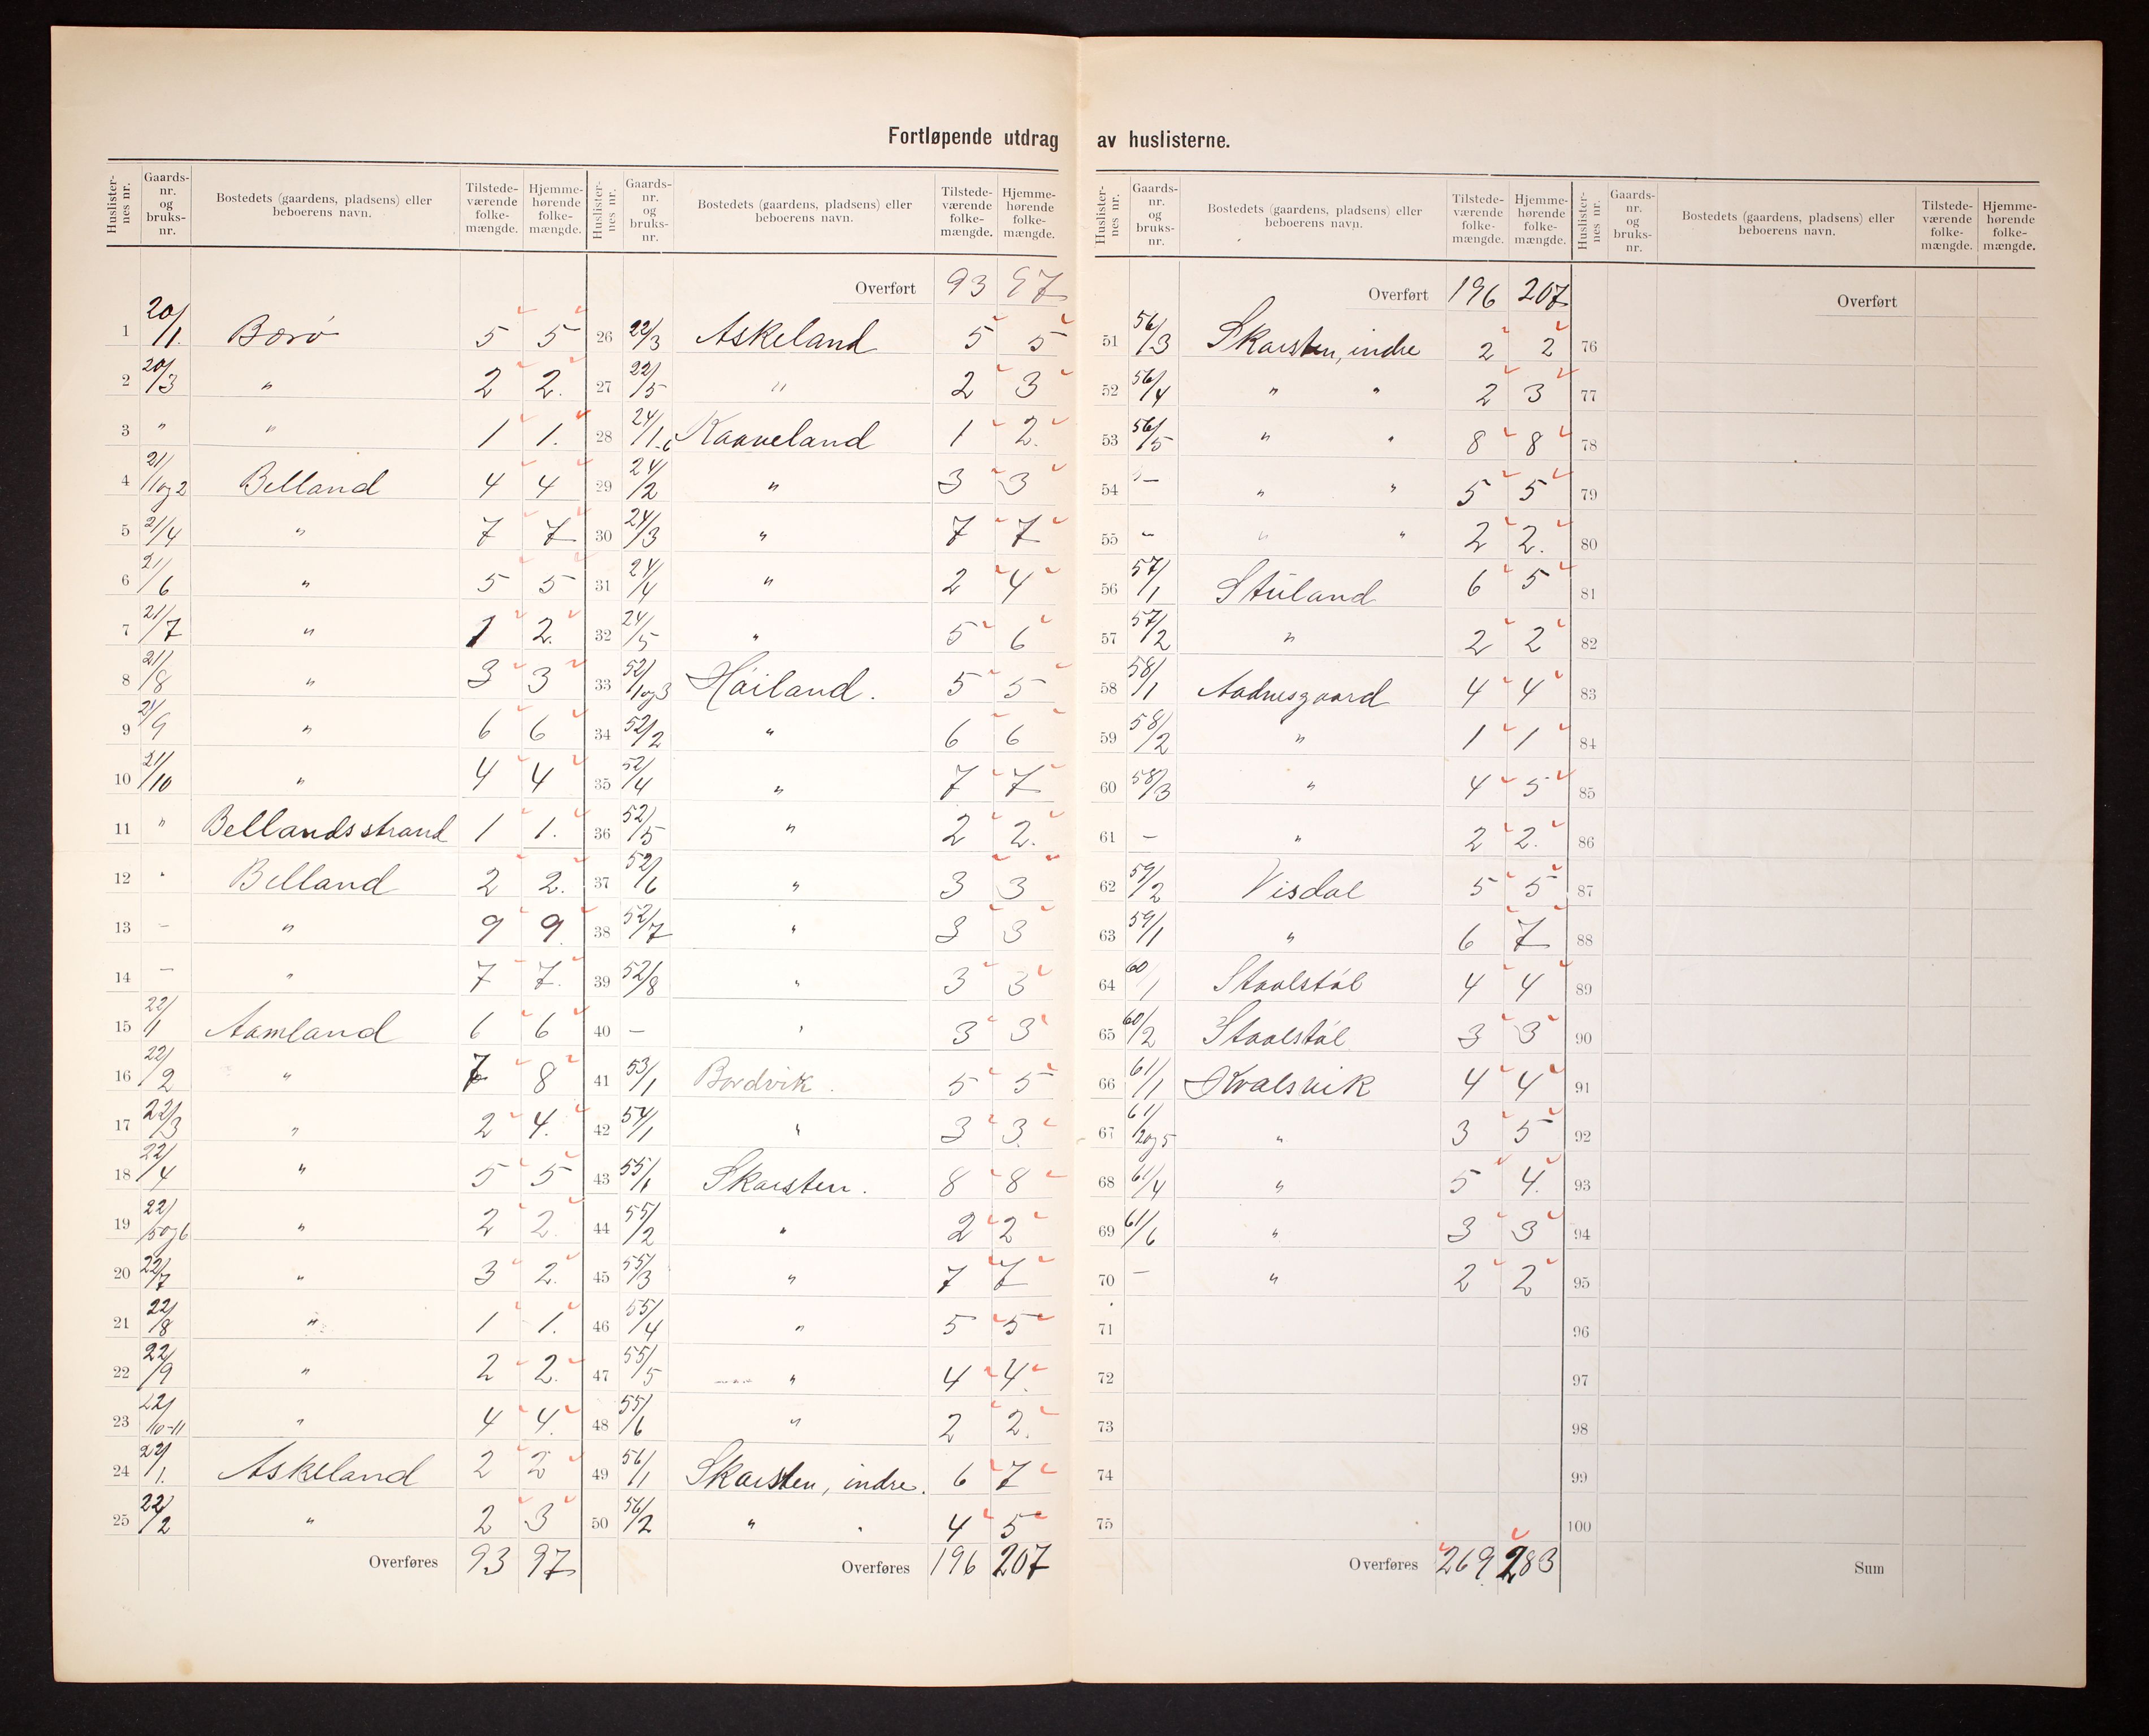 Fortløpende utdrag av huslisterne.
Huslister-nes nr. | Gaards-nr. og bruks-nr. | Bostedets (gaardens, pladsens) eller beboerens navn. | Tilstede-værende folke-mængde. | Hjemme-hørende folke-mængde.
1 20/1. Borø 5 5
2 20/3 " 2 2.
3 " " 1 1.
4 21/1og2 Belland 4 4
5 21/4 " 7 7
6 21/6 " 5 5
7 21/7 " 1 2.
8 21/8 " 3 3
9 21/9 " 6 6
10 21/10 " 4 4
11 " Bellandsstrand 1 1.
12 " Belland 2 2.
13 – " 9 9
14 – " 7 7.
15 22/1 Aamland 6 6
16 22/2 " 7 8
17 22/3 " 2 4.
18 22/4 " 5 5
19 22/5og6 " 2 2.
20 22/7 " 3 2.
21 22/8 " 1 1.
22 22/9 " 2 2.
23 22/10-11 " 4 4.
24 22/1. Askeland 2 2
25 22/2 " 2 3
Overføres 93 97
Huslister-nes nr. | Gaards-nr. og bruks-nr. | Bostedets (gaardens, pladsens) eller beboerens navn. | Tilstede-værende folke-mængde. | Hjemme-hørende folke-mængde.
Overført 93 97
26 22/3 Askeland 5 5
27 22/5 " 2 3
28 24/1-6 Kaaveland 1 2.
29 24/2 " 3 3
30 24/3 " 7 7
31 24/4 " 2 4
32 24/5 " 5 6
33 52/1og3 Háiland. 5 5
34 52/2 " 6 6
35 52/4 " 7 7
36 52/5 " 2 2.
37 52/6 " 3 3
38 52/7 " 3 3
39 52/8 " 3 3
40 – " 3 3
41 53/1 Bordvik. 5 5
42 54/1 " 3 3.
43 55/1 Skarsten. 8 8
44 55/2 " 2 2
45 55/3 " 7 7
46 55/4 " 5 5
47 55/5 " 4 4.
48 55/6 " 2 2.
49 56/1 Skarsten, indre. 6 7
50 56/2 " " 4 5
Overføres 196 207
Huslister-nes nr. | Gaards-nr. og bruks-nr. | Bostedets (gaardens, pladsens) eller beboerens navn. | Tilstede-værende folke-mængde. | Hjemme-hørende folke-mængde.
Overført 196 207
51 56/3 Skarsten, indre 2 2
52 56/4 " " 2 3
53 56/5 " " 8 8
54 – " " 5 5
55 – " " 2 2.
56 57/1 Stuland 6 5
57 57/2 " 2 2
58 58/1 Aadnesgaard 4 4
59 58/2 " 1 1
60 58/3 " 4 5
61 – " 2 2.
62 59/2 Visdal 5 5
63 59/1 " 6 7
64 60/1 Staalstól 4 4
65 60/2 Staalstól 3 3
66 61/1 Kvalsvik 4 4
67 61/2og5 " 3 5
68 61/4 " 5 4.
69 61/6 " 3 3
70 – " 2 2
71
72
73
74
75
Overføres 269 283
Huslister-nes nr. | Gaards-nr. og bruks-nr. | Bostedets (gaardens, pladsens) eller beboerens navn. | Tilstede-værende folke-mængde. | Hjemme-hørende folke-mængde.
Overført
76
77
78
79
80
81
82
83
84
85
86
87
88
89
90
91
92
93
94
95
96
97
98
99
100
Sum